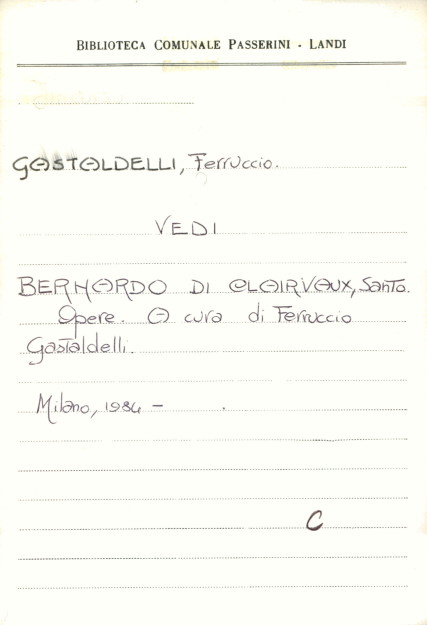 BIBLIOTECA COMUNALE PASSERINI - LANDI
GASTALDELLI, Ferruccio.
VEDI
BERNARDO DI CLAIRVAUX, Santo.
Opere. A cura di Ferruccio
Gastaldelli.
Milano, 1984 -
C